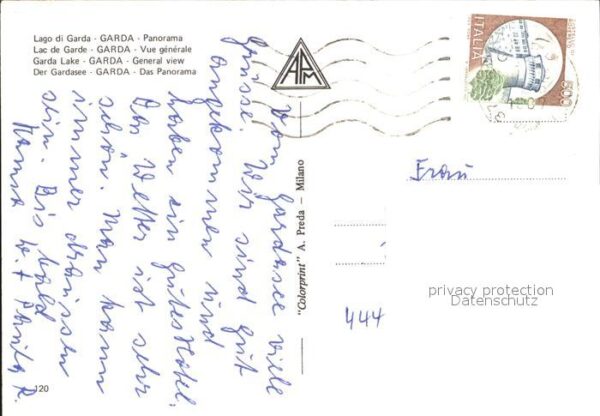 Lago di Garda - GARDA - Panorama
Lac de Garde - GARDA - Vue générale
Garda Lake - GARDA - General view
Der Gardasee - GARDA - Das Panorama
APM
ITALIA
500
Vom Gardasee viele
Grüsse. Wir sind gut
angekommen und
haben ein gutes Hotel.
Das Wetter ist sehr
schön. Man kann
immer draussen
sein. Bis bald
"Colorprint" A. Preda - Milano
Frau
privacy protection
Datenschutz
444
120